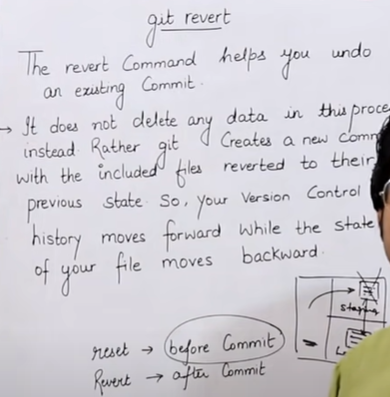 git revert
The revert Command helps you undo
an existing Commit.
→ It does not delete any data in this
instead. Rather git Creates a new
with the included files reverted to their
previous state. So, your Version Control
history moves forward while the state
of your file moves backward.
reset → before Commit
Revert → after Commit